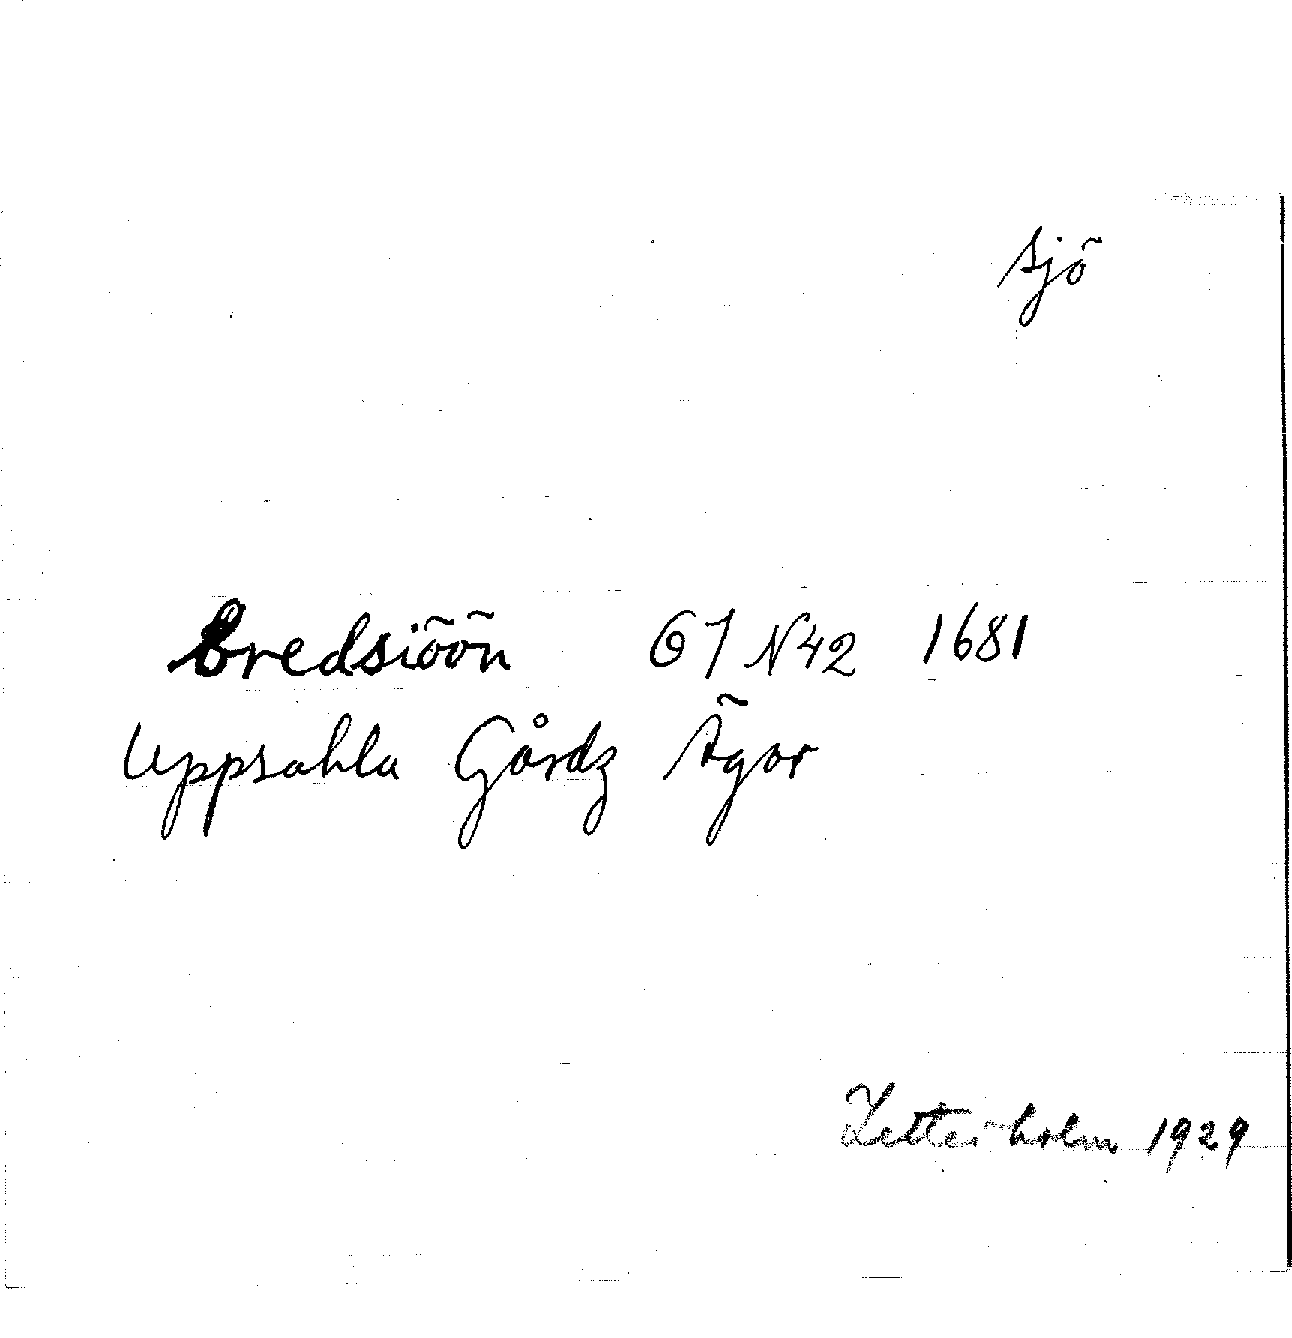 sjö
bredsiöön G1 N42 1681
Uppsahla Gårdz Ägor
Zetterholm 1929